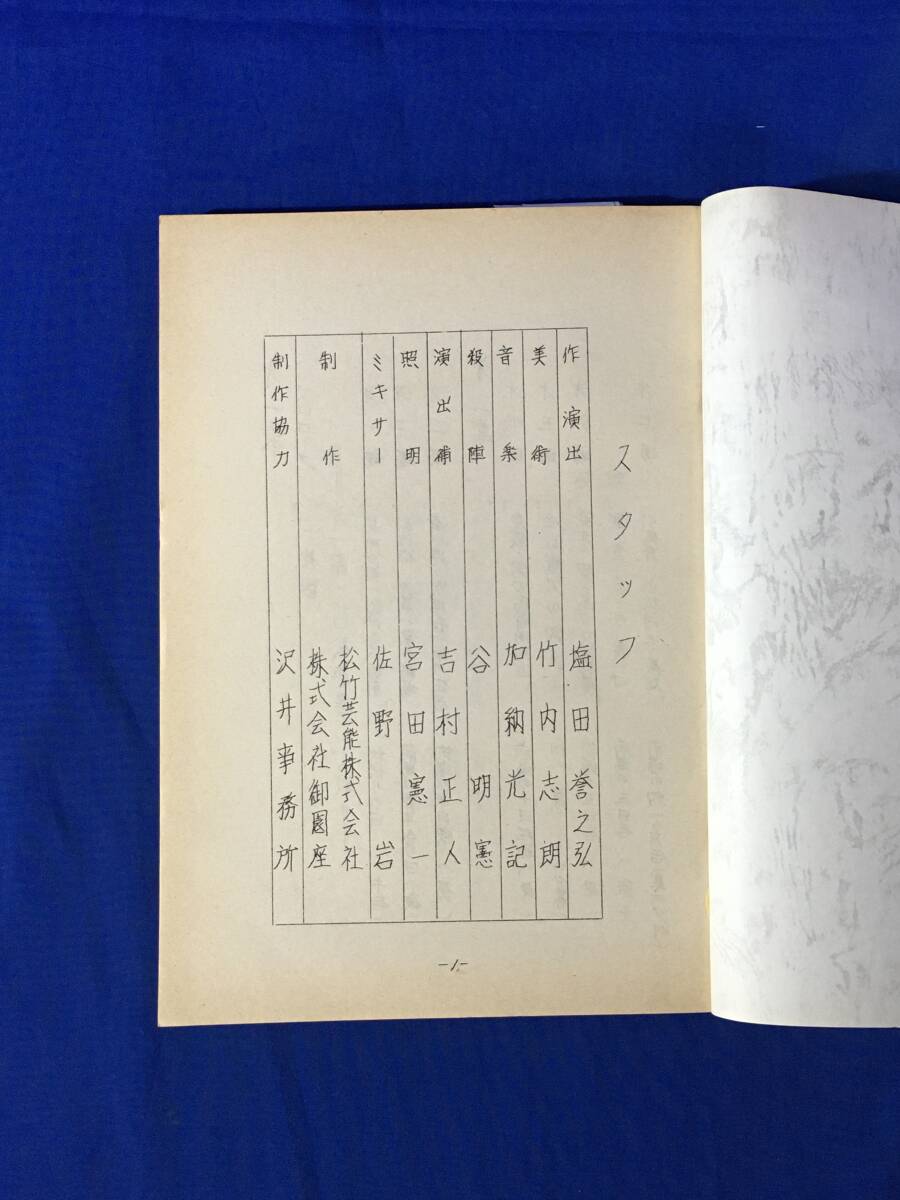 スタッフ
作 演出 塩田誉之弘
美術 竹内志朗
音楽 加納光記
殺陣 谷明憲
演出補 吉村正人
照明 宮田憲一
ミキサー 佐野岩
制作 松竹芸能株式会社
株式会社御園座
制作協力 沢井事務所
-1-